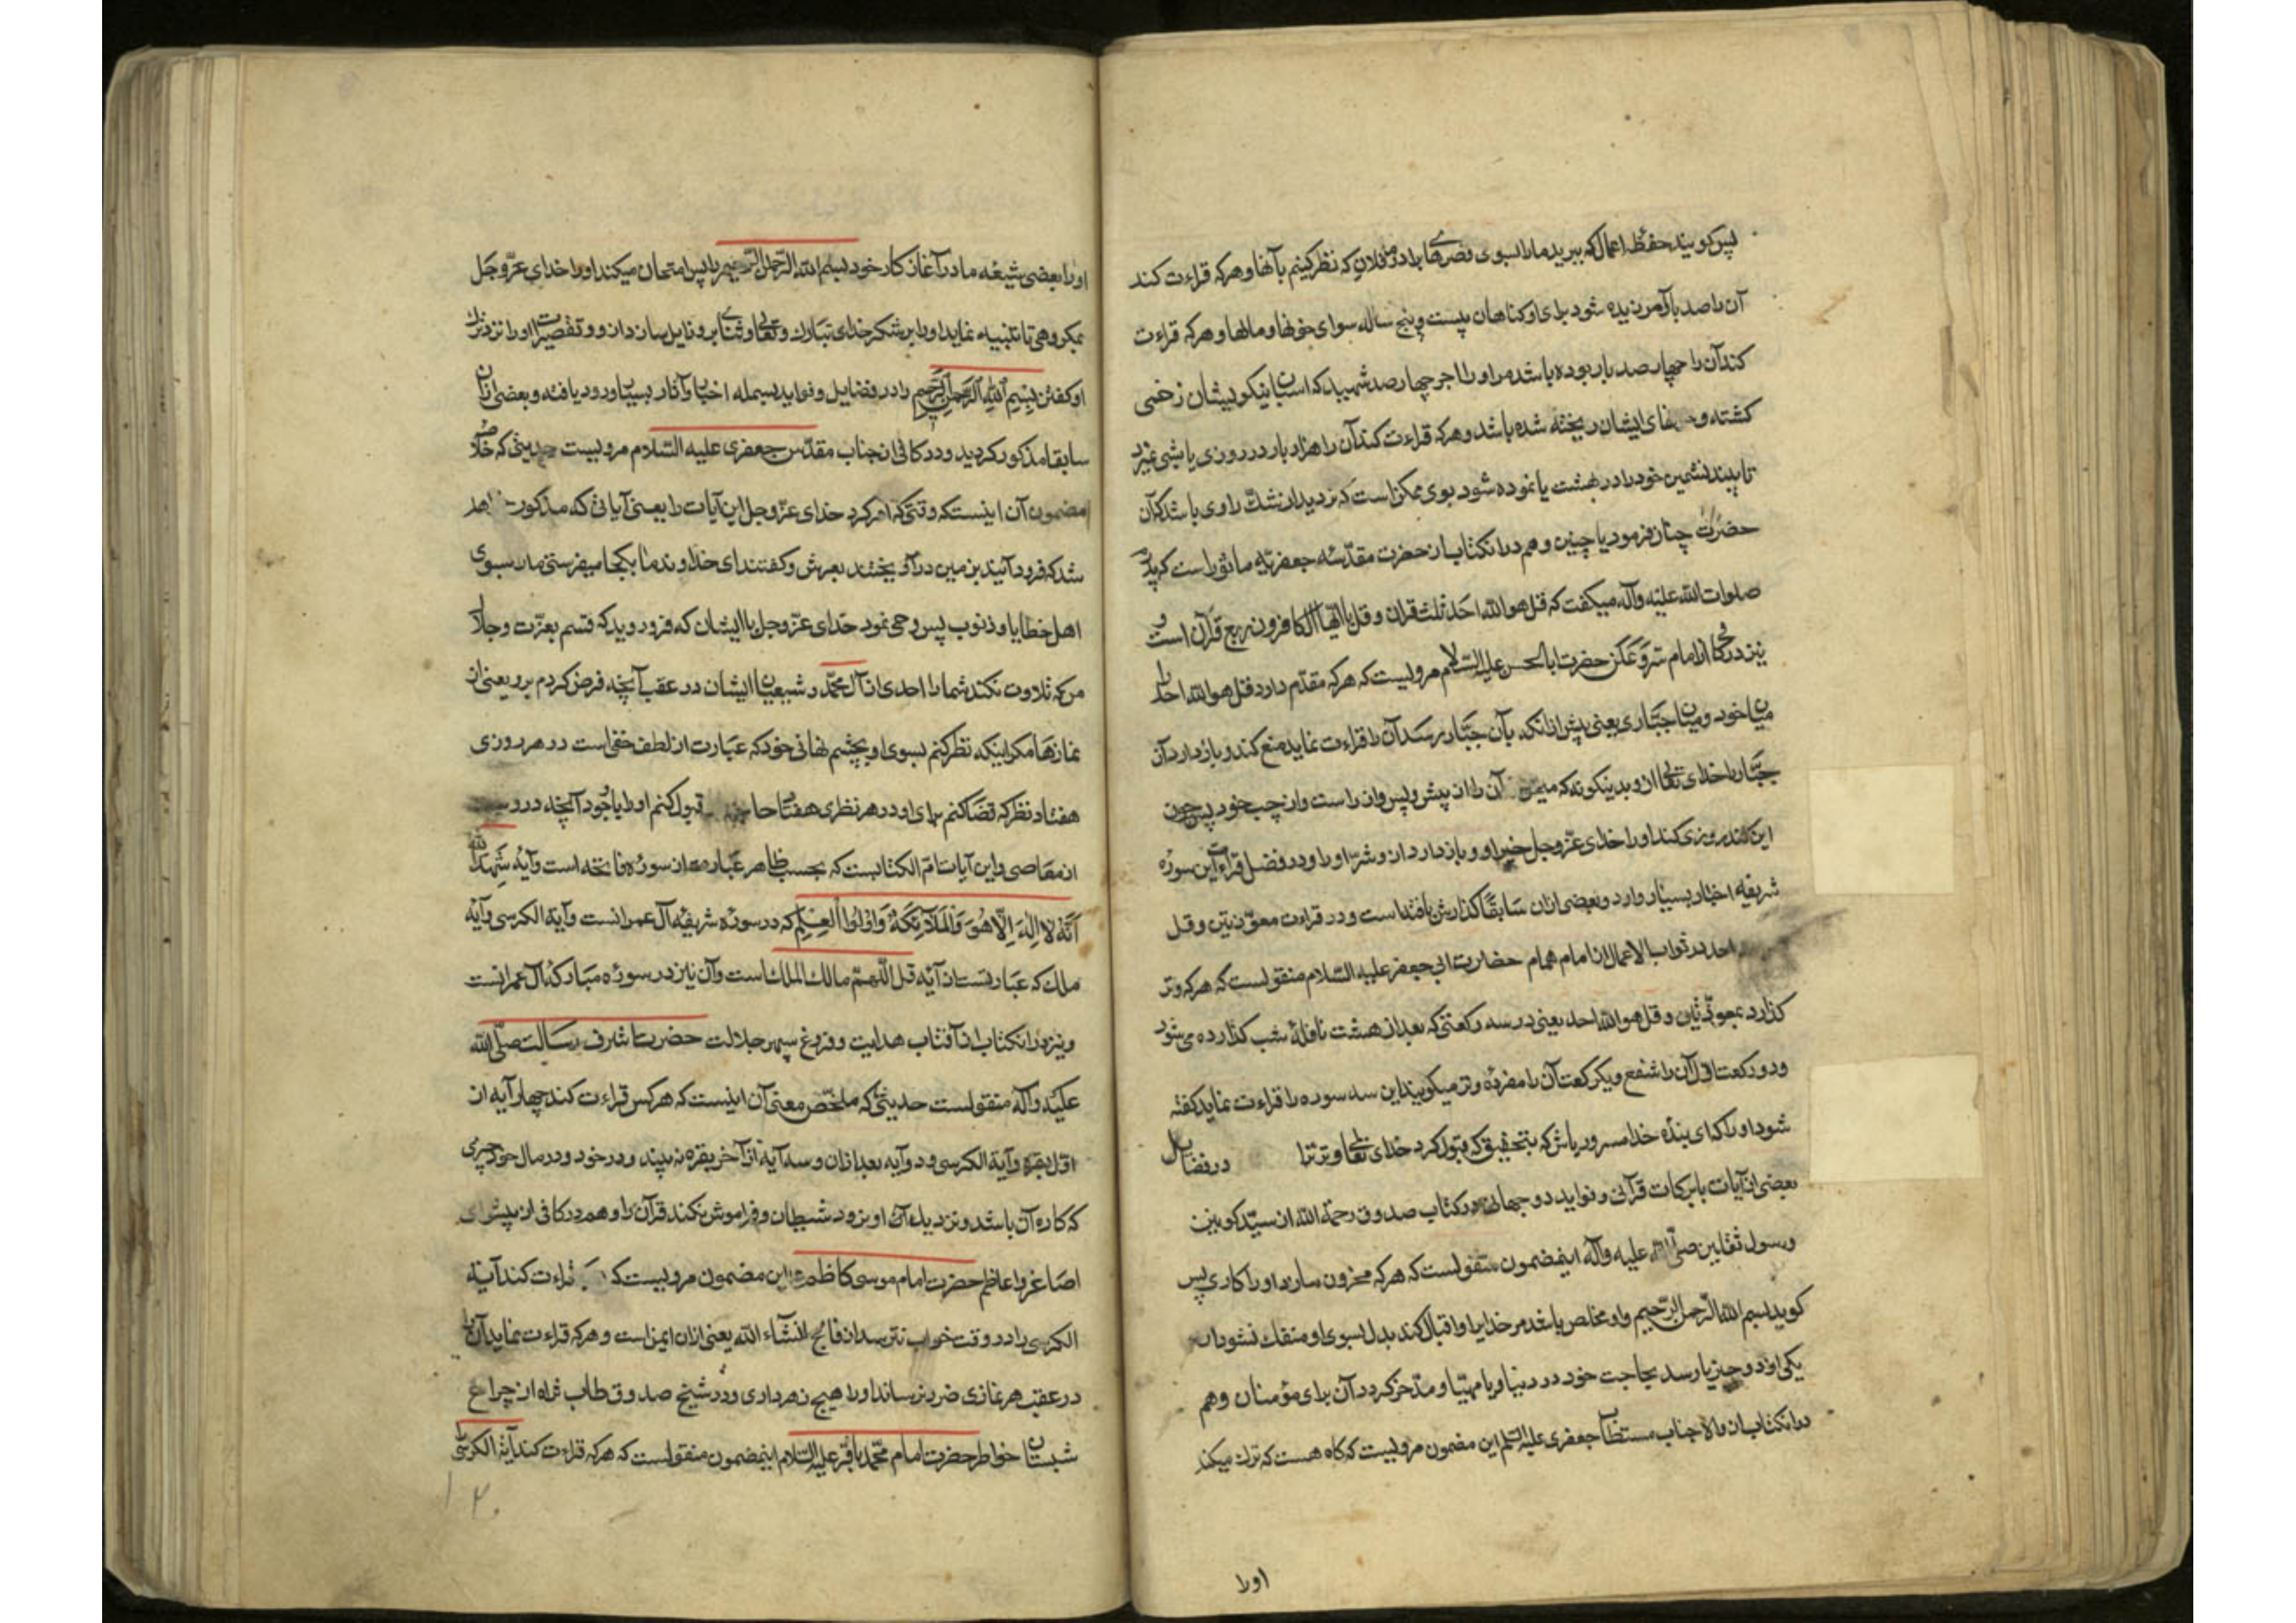 پس کویند حفظهٔ اعمال که ببرید ما را بسوی قصرهای برادر ما فلان که نظر کنیم بآنها و هرکه قراءت کند
آن را صد بار آمرزیده شود برای او کناهان بیست و پنج ساله سوای خونها و مالها و هرکه قراءت
کند آن را چهار صد بار بوده باشد مر او را اجر چهار صد شهید که اسبان نیکو پیشان زخمی
کشته و خونهای ایشان ریخته شده باشد و هرکه قراءت کند آن را هزار بار در روزی یا شبی نمیرد
تا ببیند نشمین خود را در بهشت یا نموده شود بوی ممکن است که تردید از شک راوی باشد که آن
حضرت چنان فرمود یا چنین و هم در انکتاب از حضرت مقدّسه جعفریّه ماثور است که پدرم
صلوات الله علیه وآله میکفت که قل هو الله احد ثلث قران و قل یا ایّها الکافرون ربع قرآن است و
نیز در کافی از امام حضرت ابا الحسن علیه السّلام مرویست که هرکه مقدّم دارد قل هو الله احد را
میان خود و میان جبّاری یعنی پیش از انکه بآن جبّار رسد آن را قراءت نماید منع کند و باز دارد آن
جبّار را خدای تعالی از و بدینکونه که آن را از پیش و پس و از راست و از چپ خود پس چون
این کند روزی کند او را خدای عزّ و جل خیر او و باز دارد از و شرّ او را و در فضل قراءت این سورهٔ
شریفه اخبار بسیار وارد و بعضی ازان سابقًا کذارش یافته است و در قراءت معوّذتین و قل
احد در ثواب الاعمال از امام همام حضرت ابی جعفر علیه السّلام منقولست که هرکه وتر
کذارد بمعوّذتین و قل هو الله احد یعنی در سه رکعتی که بعد از هشت نافلهٔ شب کذارده می شود
و دو رکعت اوّل آن را شفع و یکرکعت آن را مفردهٔ وتر میکویند این سه سوره را قراءت نماید کفته
شود او را که ای بندهٔ خدا مسرور باش که بتحقیق که قبول کرد خدای تعالی وتر ترا در فضایل
بعضی از آیات بابرکات قرآنی و فواید دو جهانی در کتاب صدوق رحمة الله از سیّد کونین
و رسول ثقلین صلّی الله علیه وآله اینمضمون منقولست که هرکه محزون سازد او را کاری پس
کوید بسم الله الرّحمن الرّحیم و او مخلص باشد مر خدایرا و اقبال کند بدل بسوی او منفک نشود از
یکی از دو چیز یا رسد بحاجت خود در دنیا و یا مهیّا و مدّخر کردد آن برای مؤمنان و هم
در انکتاب از والا جناب مستطاب جعفری علیه السّلم این مضمون مرویست که کاه هست که ترک میکند
اورا
اورا بعضی شیعهٔ ما در آغاز کار خود بسم الله الرّحمن الرّحیم را پس امتحان میکند او را خدای عزّ و جل
بمکروهی تا تنبیه نماید او را بر شکر خدای تبارک و تعالی و ثنای برو و زایل سازد از و وتقصیر او را نزد ترک
او کفتن بسم الله الرحمن الرحیم را در فضایل و فواید بسمله اخبار و آثار بسیار ورود یافته و بعضی ازان
سابقا مذکور کردید و در کافی از جناب مقدّس جعفری علیه السّلام مرویست حدیثی که خلاصهٔ
مضمون آن اینست که وقتی که امر کرد خدای عزّ و جل این آیات را یعنی آیاتی که مذکور خواهد
شد که فرود آئید بزمین درآویختند بعرش و کفتند ای خداوند ما بکجا میفرستی ما را بسوی
اهل خطایا و ذنوب پس وحی نمود خدای عزّ و جل با ایشان که فرود روید که قسم بعزّت و جلال
من که تلاوت نکند شما را احدی از آل محمّد و شیعیان ایشان در عقب آنچه فرض کردم برو یعنی از
نمازها مکر اینکه نظر کنم بسوی او بچشم نهانی خود که عبارت از لطف خفی است در هر روزی
هفتاد نظر که قضا کنم برای او در هر نظری هفتاد حاجت قبول کنم او را با وجود آنچه دروست
از معاصی و این آیات امّ الکتابست که بحسب ظاهر عبارت از سورهٔ فاتحه است و آیهٔ شَهِدَ الله
اَنَّهُ لا اِلٰهَ اِلّا هُوَ وَالْمَلآئِکَةُ وَاُولُوا الْعِلْمِ که در سورهٔ شریفهٔ آل عمرانست و آیة الکرسی و آیهٔ
ملک که عبارتست از آیهٔ قل اللّهمّ مالک الملک است و آن نیز در سورهٔ مبارکهٔ آل عمرانست
و نیز در انکتاب از آفتاب هدایت و فروغ سپهر جلالت حضرت اشرف رسالت صلّی الله
علیه وآله منقولست حدیثی که ملخّص معنی آن اینست که هرکس قراءت کند چهار آیه از
اوّل بقره و آیة الکرسی و دو آیه بعد ازان و سه آیه از آخر بقره نبیند در خود و در مال خود چیزی
که کاره آن باشد و نزدیک او نرود شیطان و فراموش نکند قرآن را و هم در کافی از پیشوای
اصاغر و اعاظم حضرت امام موسی کاظم این مضمون مرویست که قراءت کند آیة
الکرسی را در وقت خواب نترسد از فالج انشاء الله یعنی ازان ایمن است و هرکه قراءت نماید آن را
در عقب هر نمازی ضرر نرساند او را هیچ زهرداری و شیخ صدوق طاب ثراه از چراغ
شبستان خواطر حضرت امام محمّد باقر علیه السّلام اینمضمون منقولست که هرکه قراءت کند آیة الکرسی را
۱۲۰